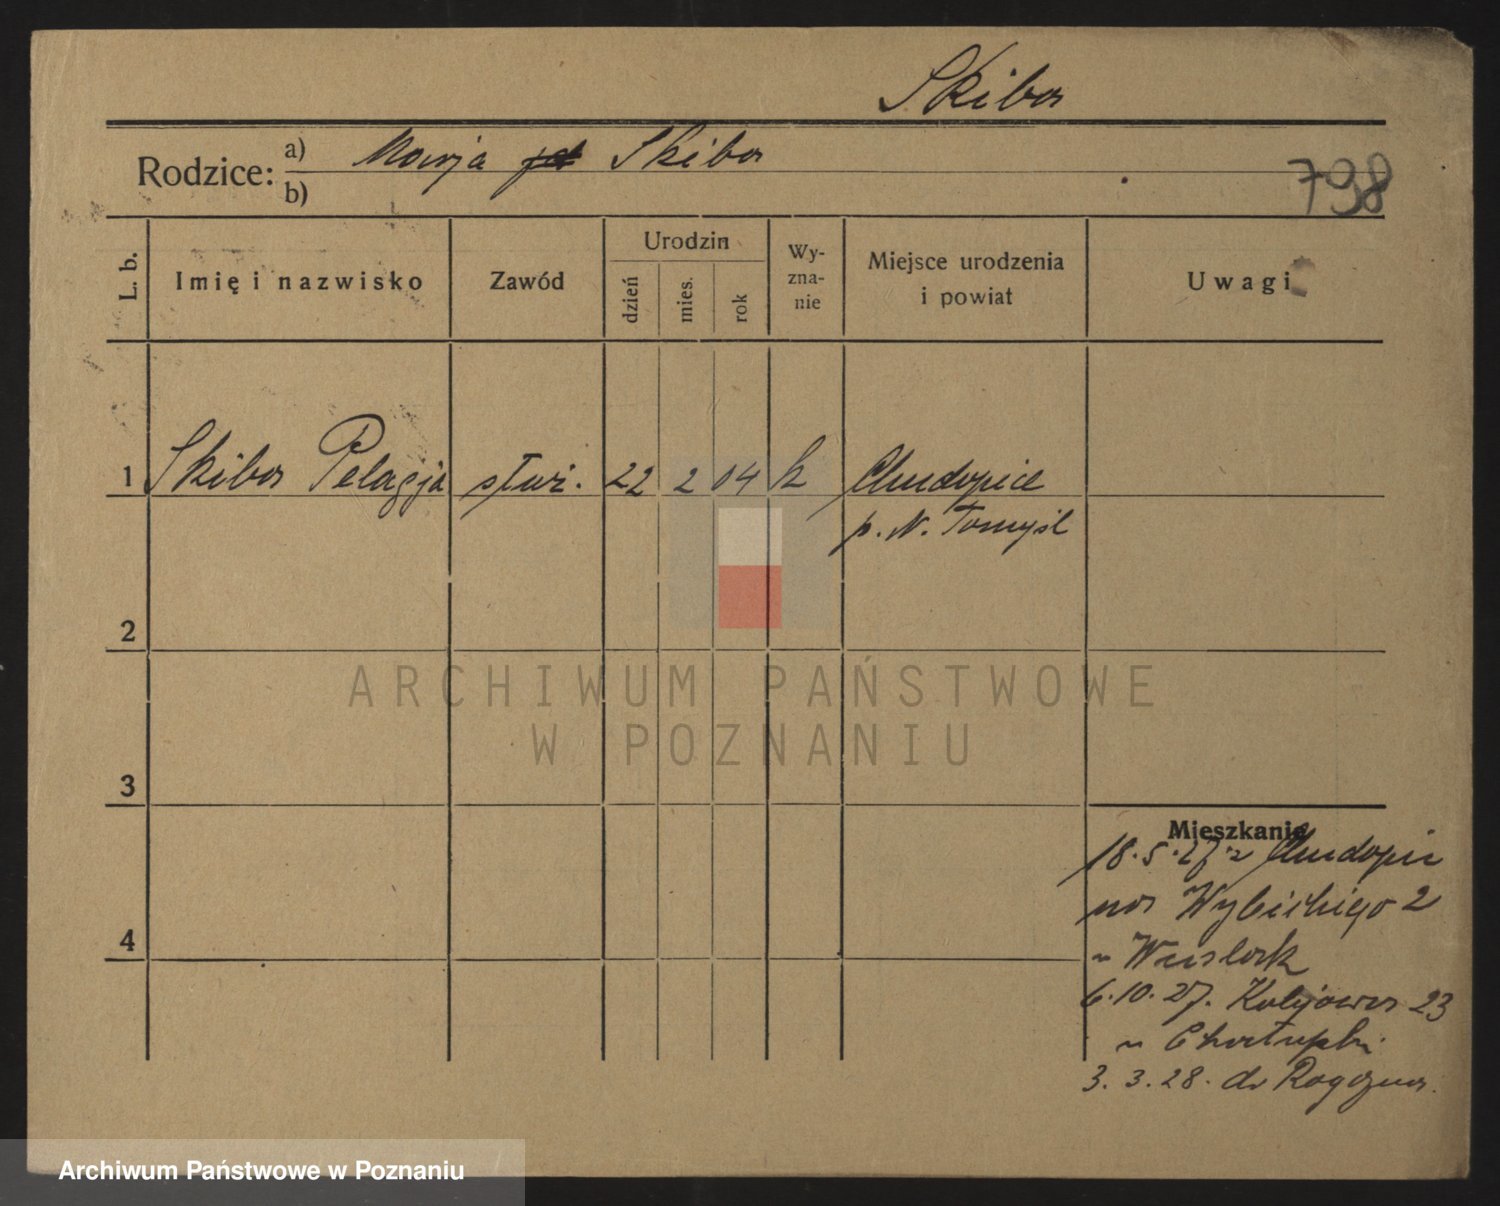 Skiba
Rodzice: a) Marja Skiba
b)
798
L. b. Imię i nazwisko Zawód Urodzin dzień mies. rok Wy-zna-nie Miejsce urodzenia i powiat Uwagi
1 Skiba Pelagja służ. 22 2 04 k Chudopice
p. N. Tomyśl
2
ARCHIWUM PAŃSTWOWE
W POZNANIU
3
Mieszkanie
18.5.27 z Chudopic
na Wybickiego 2
4
u
6.10.27. Kolejowa 23
u
3.3.28. do Rogoźna.
Archiwum Państwowe w Poznaniu